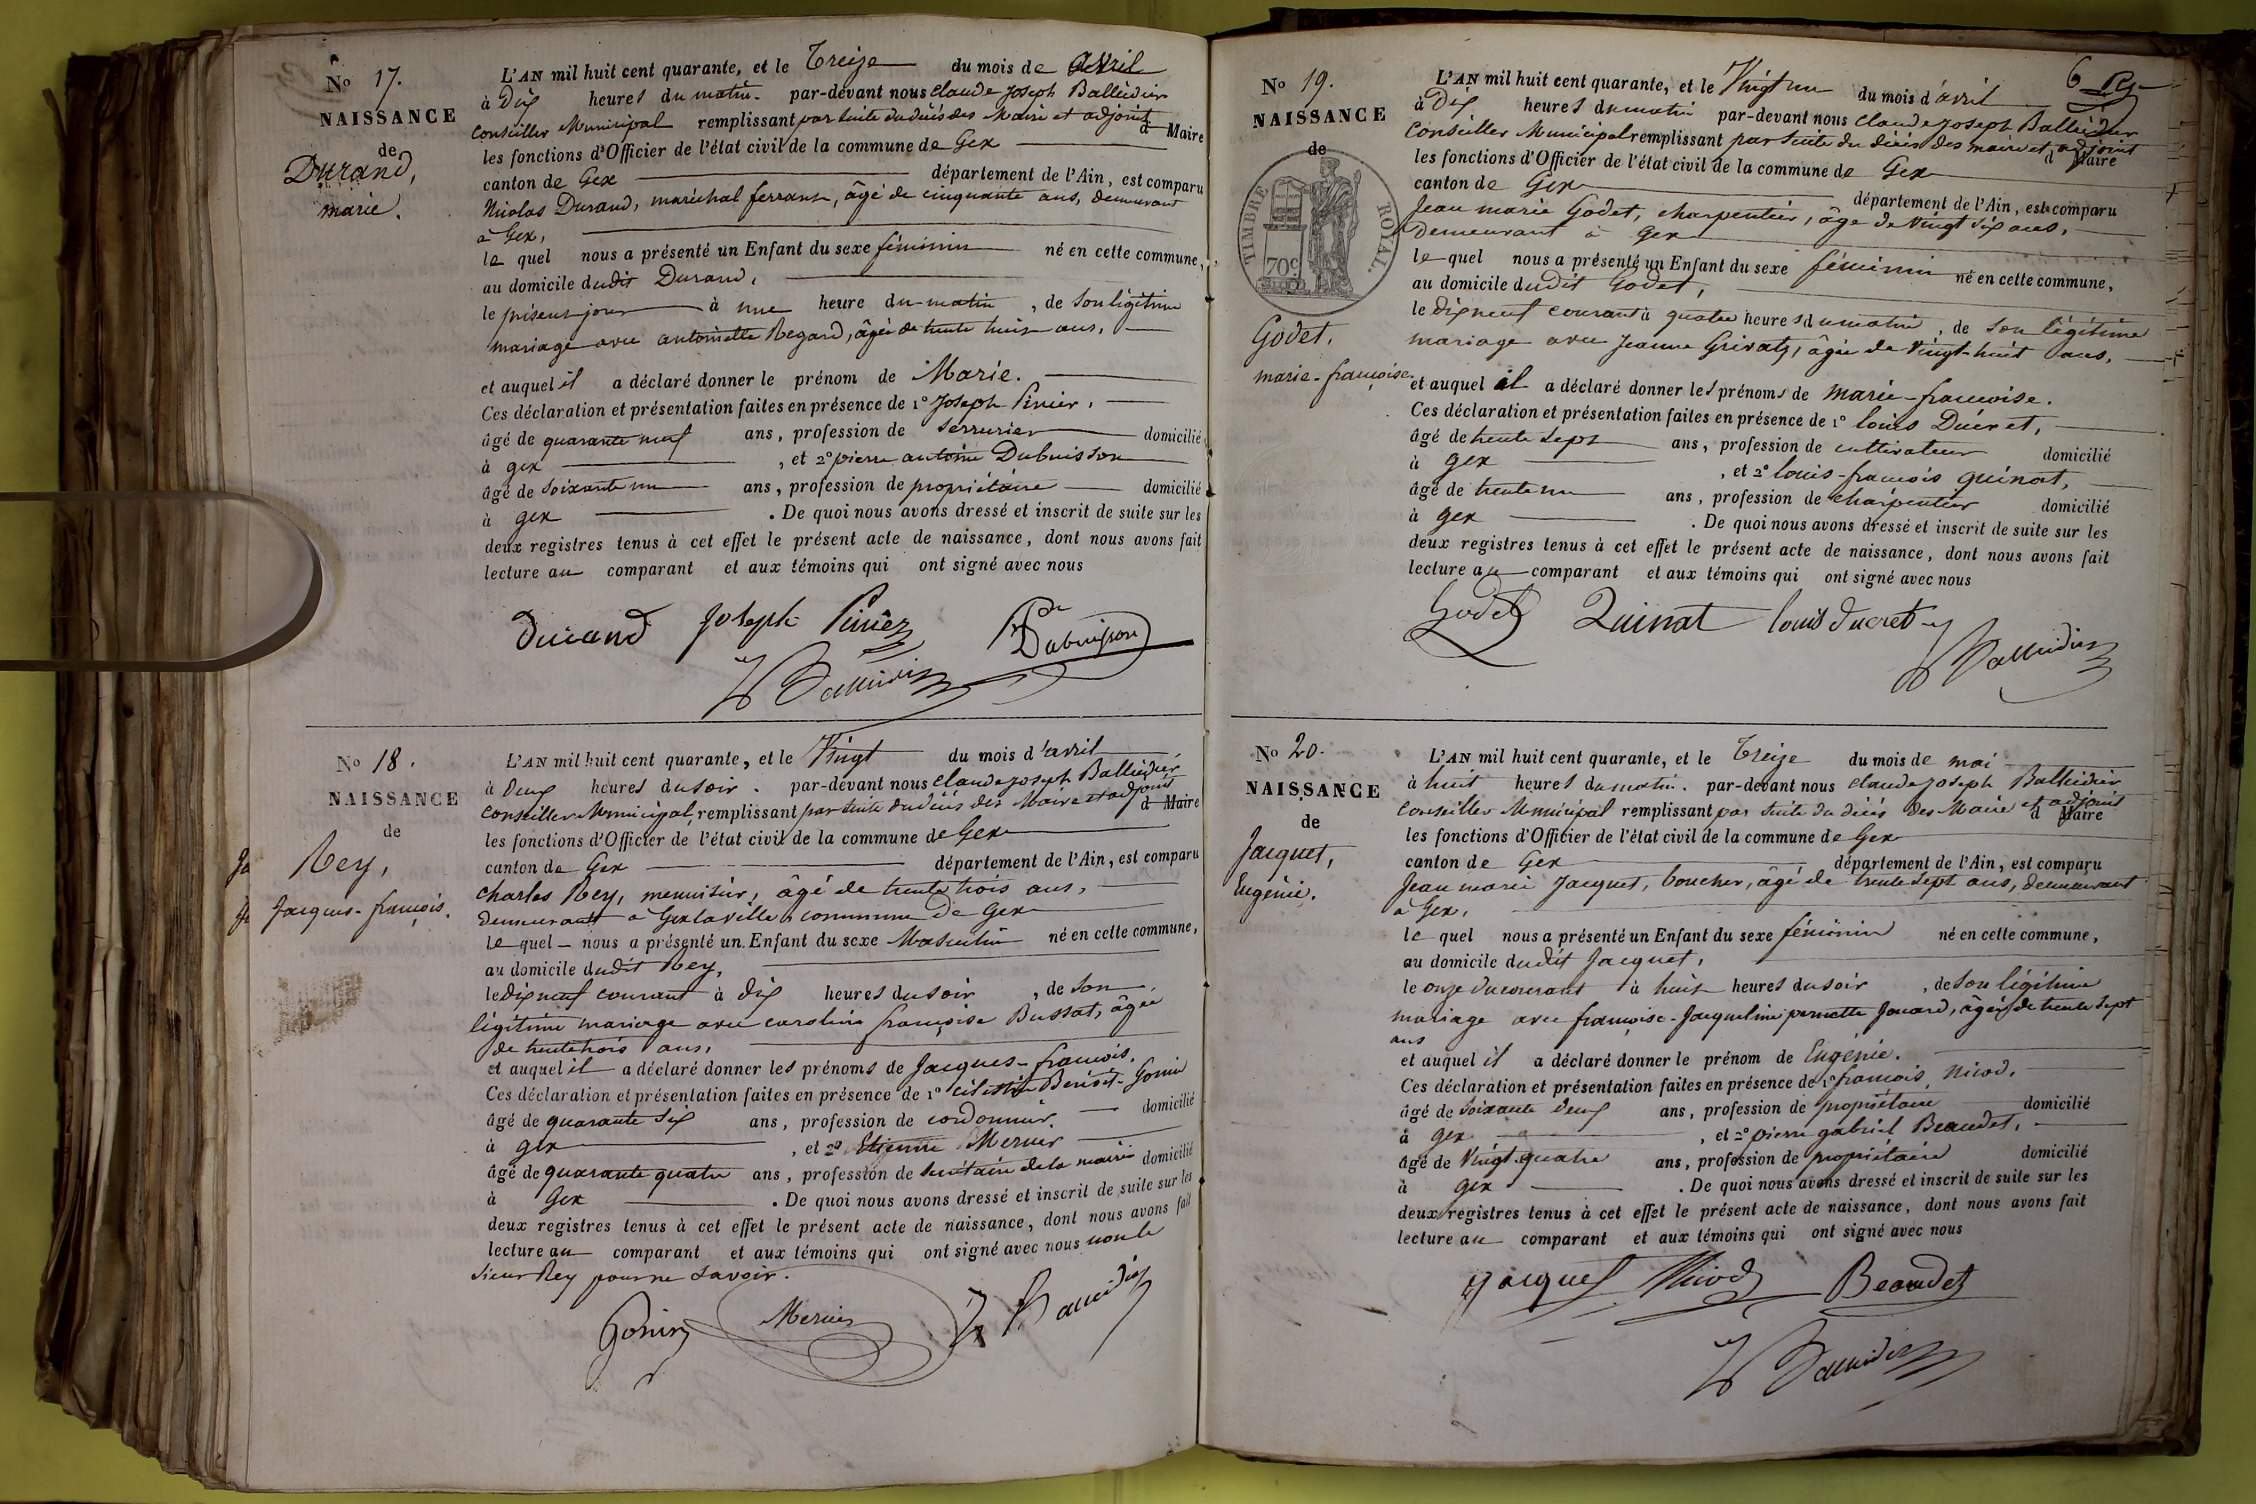 No 17.
NAISSANCE
de
Durand,
marie.
L'AN mil huit cent quarante, et le Treize du mois de avril
à Dix heures du matin. par-devant nous claude joseph Ballèdier
Conseiller Municipal remplissant par suite du décès des Maire et adjoint d Maire
les fonctions d'Officier de l'état civil de la commune de Gex
canton de Gex département de l'Ain, est comparu
Nicolas Durand, maréchal ferrant, âgé de cinquante ans, demeurant
à Gex,
le quel nous a présenté un Enfant du sexe féminin né en cette commune,
au domicile dudit Durand,
le présent jour à une heure du matin, de son légitime
mariage avec antoinette Regard, âgée de trente huit ans,
et auquel il a déclaré donner le prénom de Marie.
Ces déclaration et présentation faites en présence de 1º Joseph Pinier,
âgé de quarante neuf ans, profession de serrurier domicilié
à gex, et 2º pierre antoine Dubuisson
âgé de soixante un ans, profession de propriétaire domicilié
à gex. De quoi nous avons dressé et inscrit de suite sur les
deux registres tenus à cet effet le présent acte de naissance, dont nous avons fait
lecture au comparant et aux témoins qui ont signé avec nous
Durand Joseph Pinier Dubuisson
Ballèdier
No 18.
NAISSANCE
de
Rey,
Jacques-françois.
L'AN mil huit cent quarante, et le Vingt du mois d'avril
à Deux heures du soir. par-devant nous claude joseph Ballèdier
Conseiller Municipal, remplissant par suite du décès des Maire et adjoint d Maire
les fonctions d'Officier de l'état civil de la commune de Gex
canton de Gex département de l'Ain, est comparu
charles Rey, menuisier, âgé de trente trois ans,
demeurant à Gex la ville commune de Gex
le quel nous a présenté un Enfant du sexe Masculin né en cette commune,
au domicile dudit Rey,
le dix neuf courant à dix heures du soir, de son
légitime mariage avec caroline françoise Bussat, âgée
de trente trois ans,
et auquel il a déclaré donner les prénoms de Jacques-françois.
Ces déclaration et présentation faites en présence de 1º Benoit Gonin
âgé de quarante six ans, profession de cordonnier. domicilié
à gex, et 2º Etienne Mercier
âgé de quarante quatre ans, profession de secrétaire de la mairie domicilié
à Gex. De quoi nous avons dressé et inscrit de suite sur les
deux registres tenus à cet effet le présent acte de naissance, dont nous avons fait
lecture au comparant et aux témoins qui ont signé avec nous non le
sieur Rey pour ne savoir.
Gonin Mercier Ballèdier
6
No 19.
NAISSANCE
de
TIMBRE ROYAL.
70c
Godet,
marie-françoise
L'AN mil huit cent quarante, et le Vingt un du mois d'avril
à Dix heures du matin par-devant nous claude joseph Ballèdier
Conseiller Municipal remplissant par suite du décès des maire et adjoint d Maire
les fonctions d'Officier de l'état civil de la commune de Gex
canton de Gex département de l'Ain, est comparu
Jean marie Godet, charpentier, âgé de vingt six ans,
demeurant à gex
le quel nous a présenté un Enfant du sexe féminin né en cette commune,
au domicile dudit Godet,
le dix neuf courant à quatre heures du matin, de son légitime
mariage avec jeanne Grivatz, âgée de vingt-huit ans,
et auquel il a déclaré donner les prénoms de marie-françoise.
Ces déclaration et présentation faites en présence de 1º louis Ducret,
âgé de trente sept ans, profession de cultivateur domicilié
à gex, et 2º louis-françois quinat,
âgé de trente un ans, profession de charpentier domicilié
à gex. De quoi nous avons dressé et inscrit de suite sur les
deux registres tenus à cet effet le présent acte de naissance, dont nous avons fait
lecture au comparant et aux témoins qui ont signé avec nous
Godet Quinat louis ducret
Ballèdier
No 20.
NAISSANCE
de
Jacquet,
Eugénie.
L'AN mil huit cent quarante, et le Treize du mois de mai
à huit heures du matin. par-devant nous claude joseph Ballèdier
Conseiller Municipal remplissant par suite du décès des Maire et adjoint d Maire
les fonctions d'Officier de l'état civil de la commune de Gex
canton de Gex département de l'Ain, est comparu
Jean marie Jacquet, boucher, âgé de trente sept ans, demeurant
à Gex,
le quel nous a présenté un Enfant du sexe féminin né en cette commune,
au domicile dudit Jacquet,
le onze du courant à huit heures du soir, de son légitime
mariage avec françoise-Jacqueline pernette Jouard, âgée de trente sept
ans
et auquel il a déclaré donner le prénom de Eugénie.
Ces déclaration et présentation faites en présence de 1º françois Nicod,
âgé de soixante deux ans, profession de propriétaire domicilié
à gex, et 2º pierre gabriel Beaudet,
âgé de vingt quatre ans, profession de propriétaire domicilié
à gex. De quoi nous avons dressé et inscrit de suite sur les
deux registres tenus à cet effet le présent acte de naissance, dont nous avons fait
lecture au comparant et aux témoins qui ont signé avec nous
jacquet Nicod Beaudet
Ballèdier